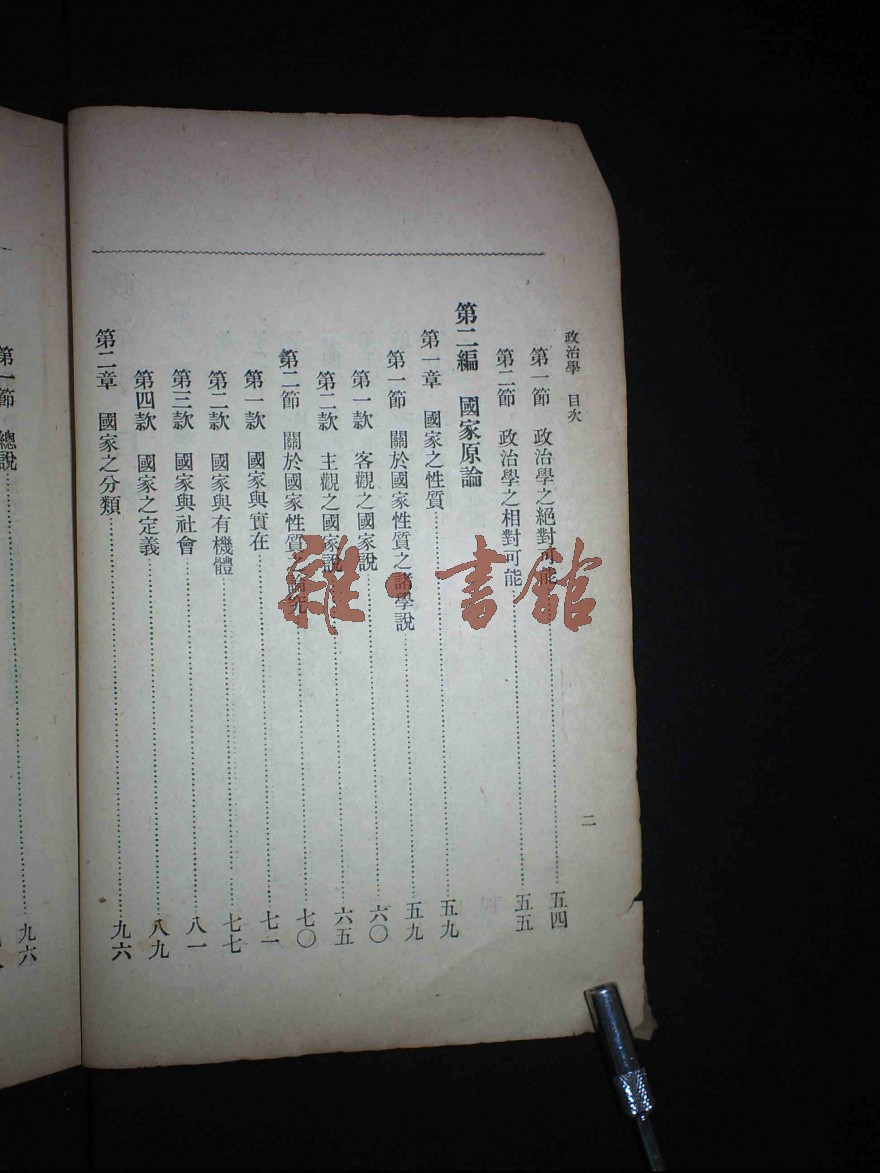 政治學 目次
二
第一節 政治學之絕對可能 五四
第二節 政治學之相對可能 五五
第二編 國家原論
第一章 國家之性質 五九
第一節 關於國家性質之諸學說 五九
第一款 客觀之國家說 六〇
第二款 主觀之國家說 六五
第二節 關於國家性質之論究 七〇
第一款 國家與實在 七一
第二款 國家與有機體 七七
第三款 國家與社會 八一
第四款 國家之定義 八九
第二章 國家之分類 九六
第一節 總說 九六
雜·書館